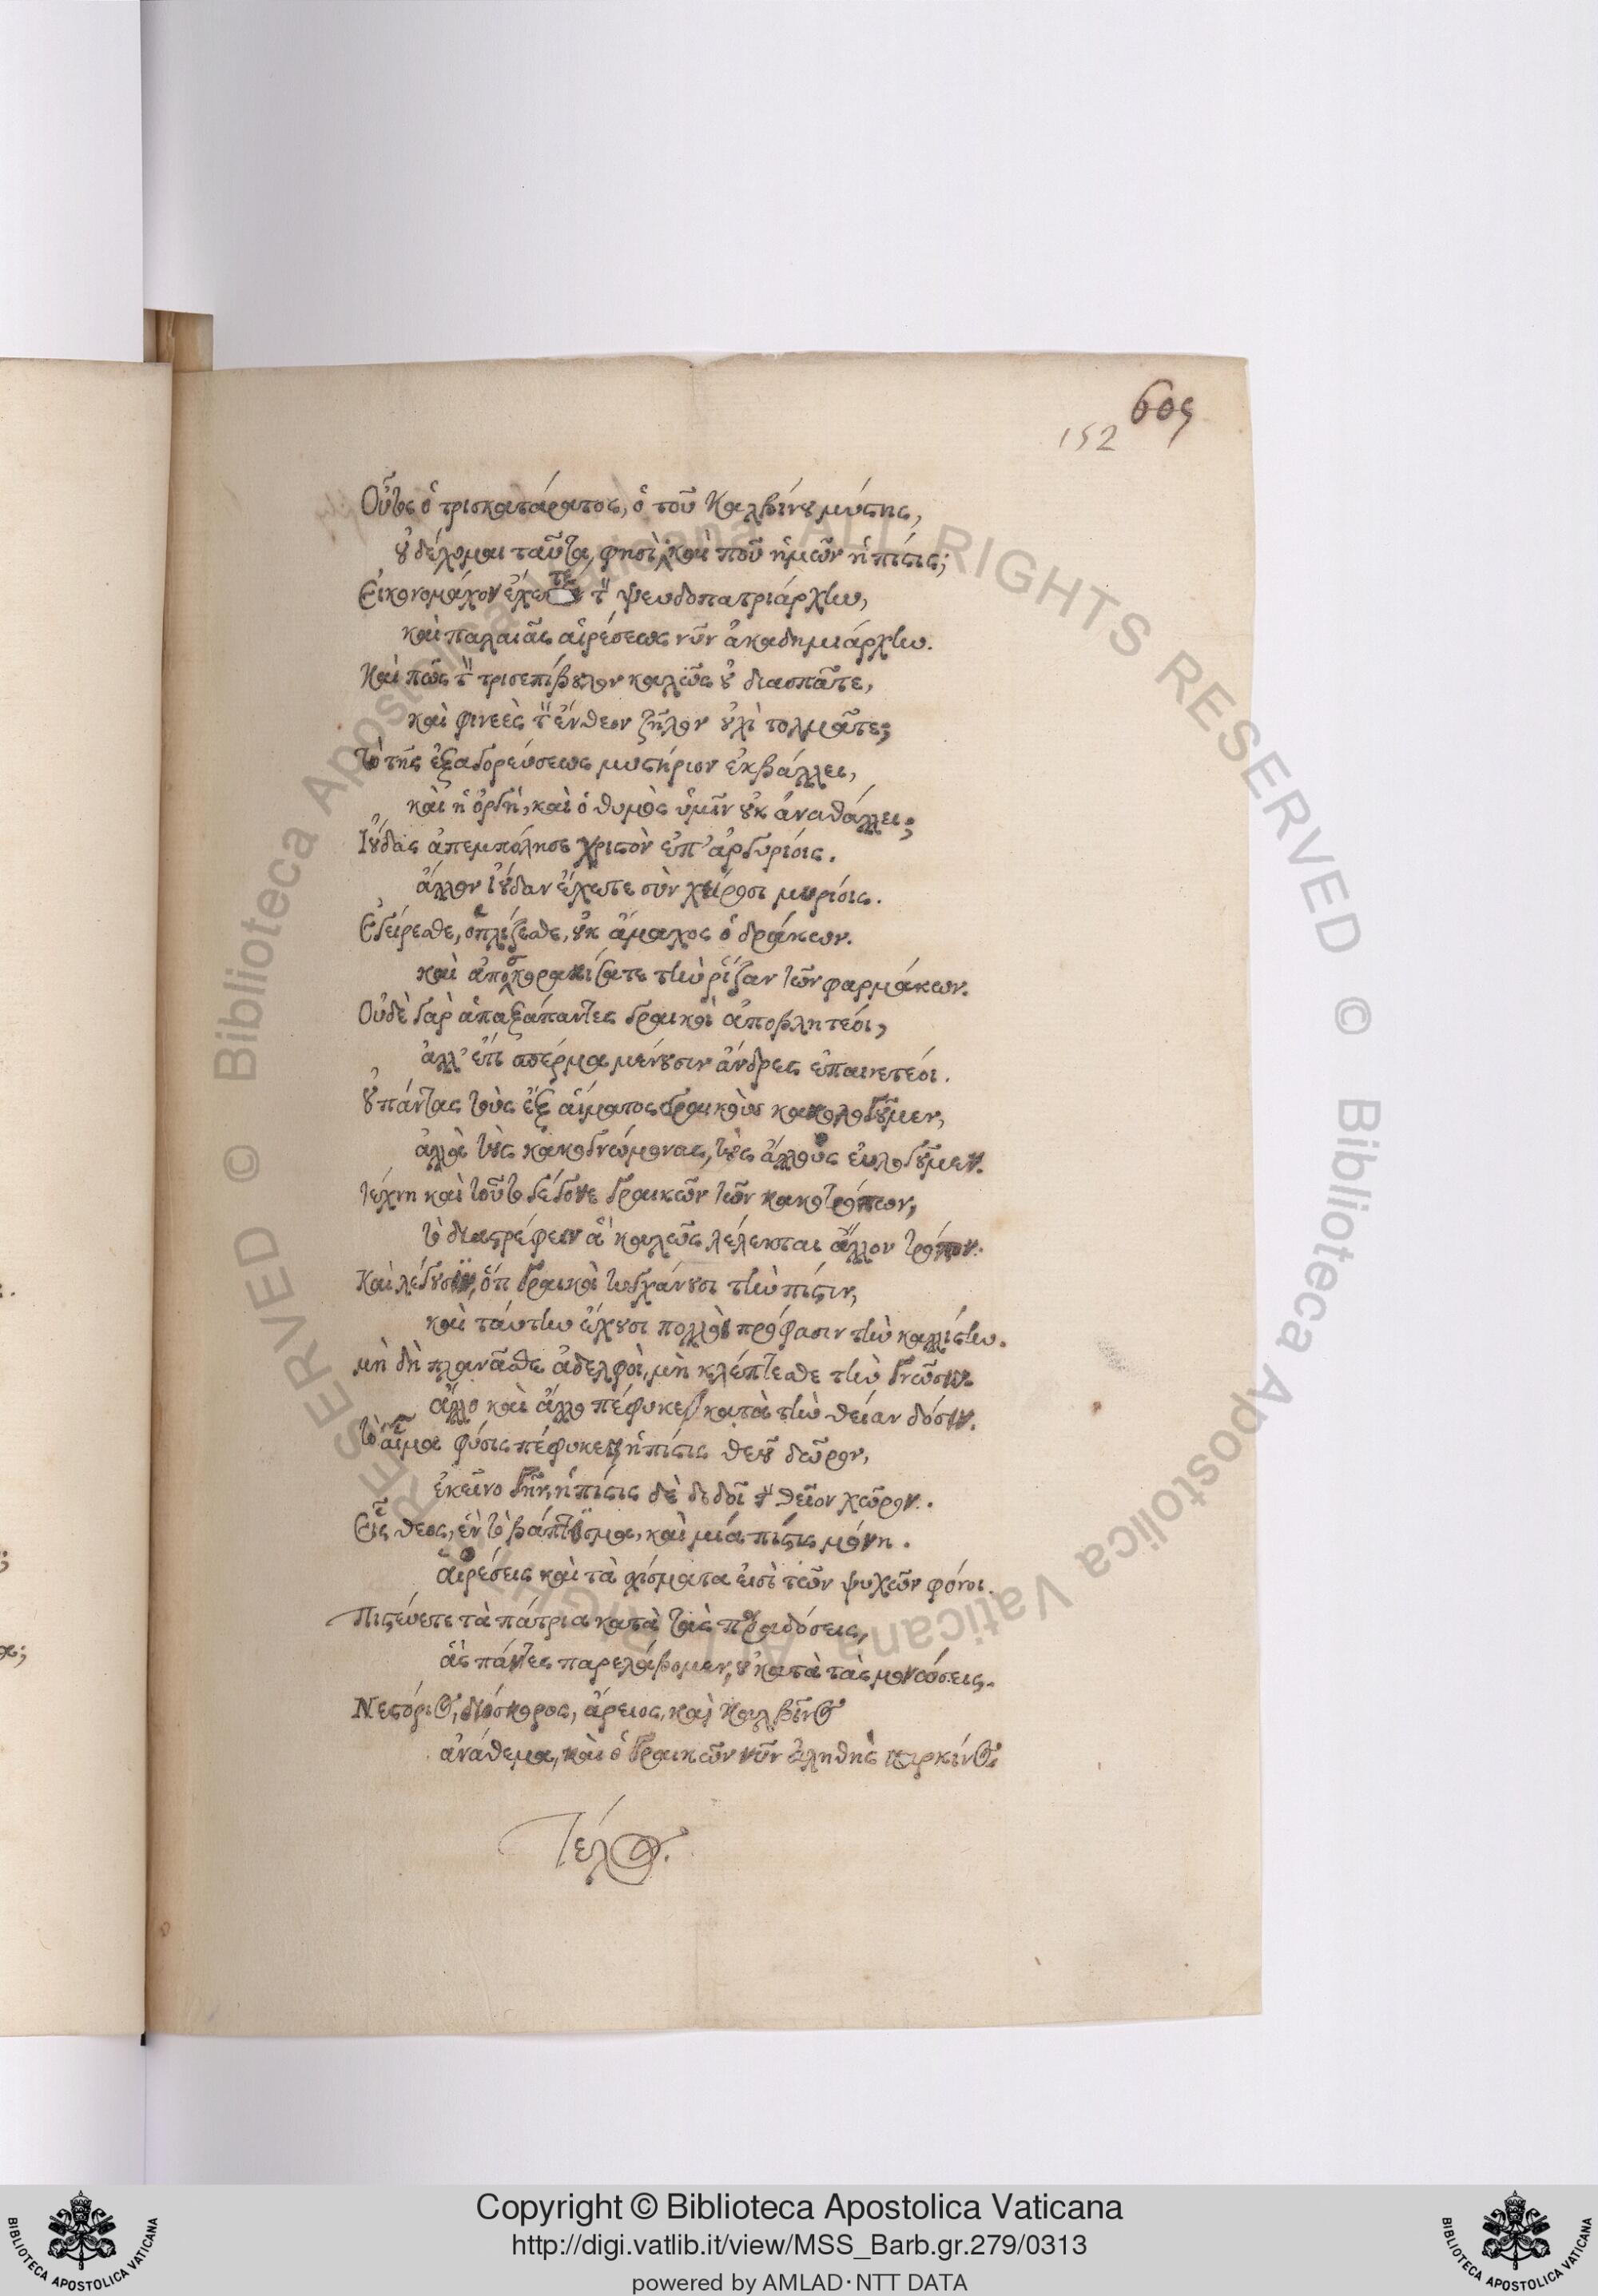 609
152
Οὗτος ὁ τρισκατάρατος, ὁ τοῦ Καλβίνου μύστης,
οὐ δέχομαι ταῦτα, φησὶ, καὶ ποῦ ἡμῶν ἡ πίστις;
Εἰκονομάχον ἔχετε τὸν ψευδοπατριάρχην,
καὶ παλαιᾶς αἱρέσεως νῦν ἀκαδημιάρχην.
Καὶ πῶς τὸν τρισεπίβουλον καλῶς οὐ διασπᾶτε,
καὶ φινεὲς τὸν ἔνθεον ζῆλον οὐχὶ τολμᾶτε;
τὸ τῆς ἐξαγορεύσεως μυστήριον ἐκβάλλει,
καὶ ἡ ὀργὴ, καὶ ὁ θυμὸς ὑμῖν οὐκ ἀναθάλλει;
Ἰούδας ἀπεμπόλησε χριστὸν ἐπ' ἀργυρίοις.
ἄλλον ἰούδαν ἔχετε σὺν χείροσι μυρίοις.
Ἐγείρεσθε, ὁπλίζεσθε, οὐκ ἄμαχος ὁ δράκων.
καὶ ἀποσκορακίσατε τὴν ῥίζαν τῶν φαρμάκων.
Οὐδὲ γὰρ ἁπαξάπαντες γραικοὶ ἀποβλητέοι,
ἀλλ' ἔτι σπέρμα μένουσιν ἄνδρες ἐπαινετέοι.
οὐ πάντας τοὺς ἐξ αἵματος γραικοὺς κακολογοῦμεν,
ἀλλὰ τοὺς κακογνώμονας, τοὺς ἄλλους εὐλογοῦμεν.
τέχνη καὶ τοῦτο γέγονε γραικῶν τῶν κακοτρόπων,
τὸ διαστρέφειν ἃ καλῶς λέλεκται ἄλλον τρόπον.
Καὶ λέγουσιν, ὅτι γραικοὶ τυγχάνουσι τὴν πίστιν,
καὶ ταύτην ἔχουσι πολλοὶ πρόφασιν τὴν καλλίστην.
μὴ δὴ πλανᾶσθε ἀδελφοὶ, μὴ κλέπτεσθε τὴν γνῶσιν.
ἄλλο καὶ ἄλλο πέφυκε κατὰ τὴν θείαν δόσιν.
τὸ αἷμα φύσις πέφυκεν, ἡ πίστις θεοῦ δῶρον,
ἐκεῖνο γῆν, ἡ πίστις δὲ διδοῖ τὸν θεῖον χῶρον.
Εἷς θεος, ἓν τὸ βάπτισμα, καὶ μία πίστις μόνη.
αἱρέσεις καὶ τὰ σχίσματα εἰσὶ τῶν ψυχῶν φόνοι.
Πιστεύετε τὰ πάτρια κατὰ τὰς παραδόσεις,
ἃς πάντες παρελάβομεν, οὐ κατὰ τὰς μονώσεις.
Νεστόριος, διόσκορος, ἄρειος, καὶ καλβῖνος
ἀνάθεμα, καὶ ὁ γραικῶν νῦν ἀληθὴς καρκίνος.
Τέλος.
Copyright © Biblioteca Apostolica Vaticana
http://digi.vatlib.it/view/MSS_Barb.gr.279/0313
powered by AMLAD·NTT DATA
BIBLIOTECA APOSTOLICA VATICANA
BIBLIOTECA APOSTOLICA VATICANA
© Biblioteca Apostolica Vaticana ALL RIGHTS RESERVED
© Biblioteca Apostolica Vaticana ALL RIGHTS RESERVED